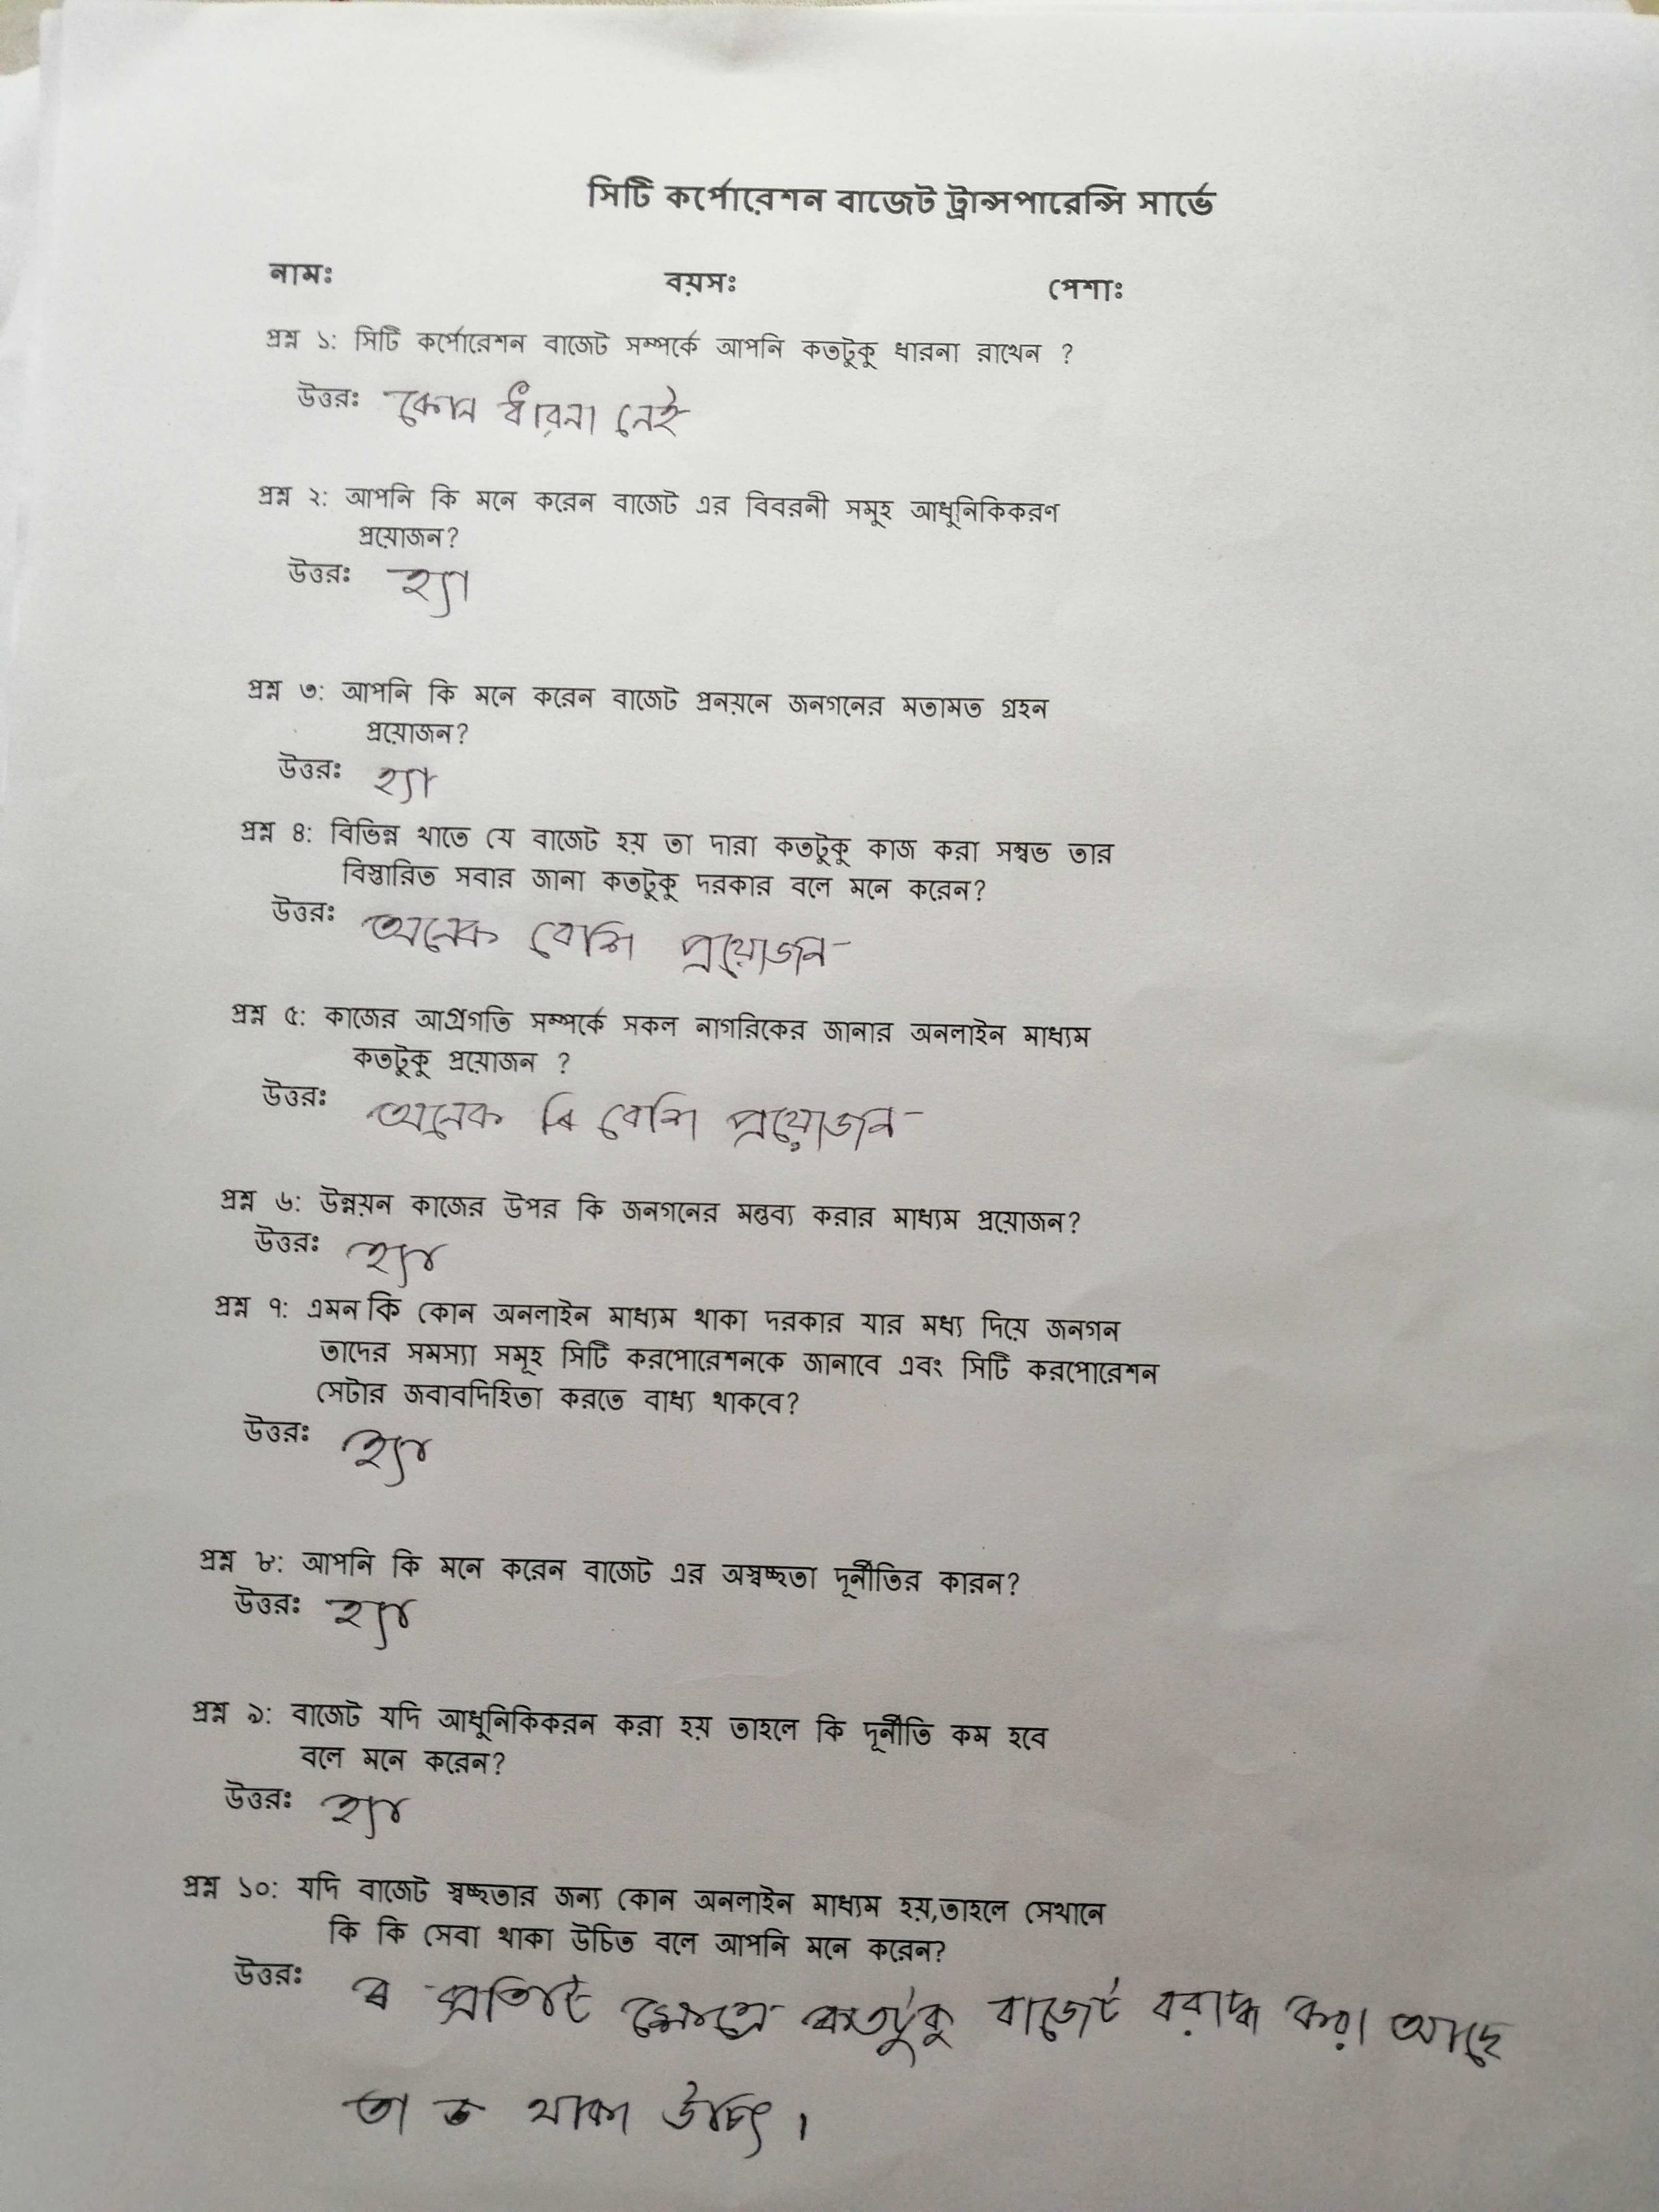 সিটি কর্পোরেশন বাজেট ট্রান্সপারেন্সি সার্ভে
নামঃ বয়সঃ পেশাঃ
প্রশ্ন ১: সিটি কর্পোরেশন বাজেট সম্পর্কে আপনি কতটুকু ধারনা রাখেন ?
উত্তরঃ কোন ধারনা নেই
প্রশ্ন ২: আপনি কি মনে করেন বাজেট এর বিবরনী সমূহ আধুনিকিকরণ
প্রয়োজন?
উত্তরঃ হ্যা
প্রশ্ন ৩: আপনি কি মনে করেন বাজেট প্রনয়নে জনগনের মতামত গ্রহন
প্রয়োজন?
উত্তরঃ হ্যা
প্রশ্ন ৪: বিভিন্ন খাতে যে বাজেট হয় তা দারা কতটুকু কাজ করা সম্বভ তার
বিস্তারিত সবার জানা কতটুকু দরকার বলে মনে করেন?
উত্তরঃ অনেক বেশি প্রয়োজন
প্রশ্ন ৫: কাজের আগ্রগতি সম্পর্কে সকল নাগরিকের জানার অনলাইন মাধ্যম
কতটুকু প্রয়োজন ?
উত্তরঃ অনেক বেশি প্রয়োজন
প্রশ্ন ৬: উন্নয়ন কাজের উপর কি জনগনের মন্তব্য করার মাধ্যম প্রয়োজন?
উত্তরঃ হ্যা
প্রশ্ন ৭: এমন কি কোন অনলাইন মাধ্যম থাকা দরকার যার মধ্য দিয়ে জনগন
তাদের সমস্যা সমূহ সিটি করপোরেশনকে জানাবে এবং সিটি করপোরেশন
সেটার জবাবদিহিতা করতে বাধ্য থাকবে?
উত্তরঃ হ্যা
প্রশ্ন ৮: আপনি কি মনে করেন বাজেট এর অস্বচ্ছতা দূর্নীতির কারন?
উত্তরঃ হ্যা
প্রশ্ন ৯: বাজেট যদি আধুনিকিকরন করা হয় তাহলে কি দূর্নীতি কম হবে
বলে মনে করেন?
উত্তরঃ হ্যা
প্রশ্ন ১০: যদি বাজেট স্বচ্ছতার জন্য কোন অনলাইন মাধ্যম হয়,তাহলে সেখানে
কি কি সেবা থাকা উচিত বলে আপনি মনে করেন?
উত্তরঃ প্রতিটি ক্ষেত্রে কতটুকু বাজেট বরাদ্ধ করা আছে
তা থাকা উচিৎ ।